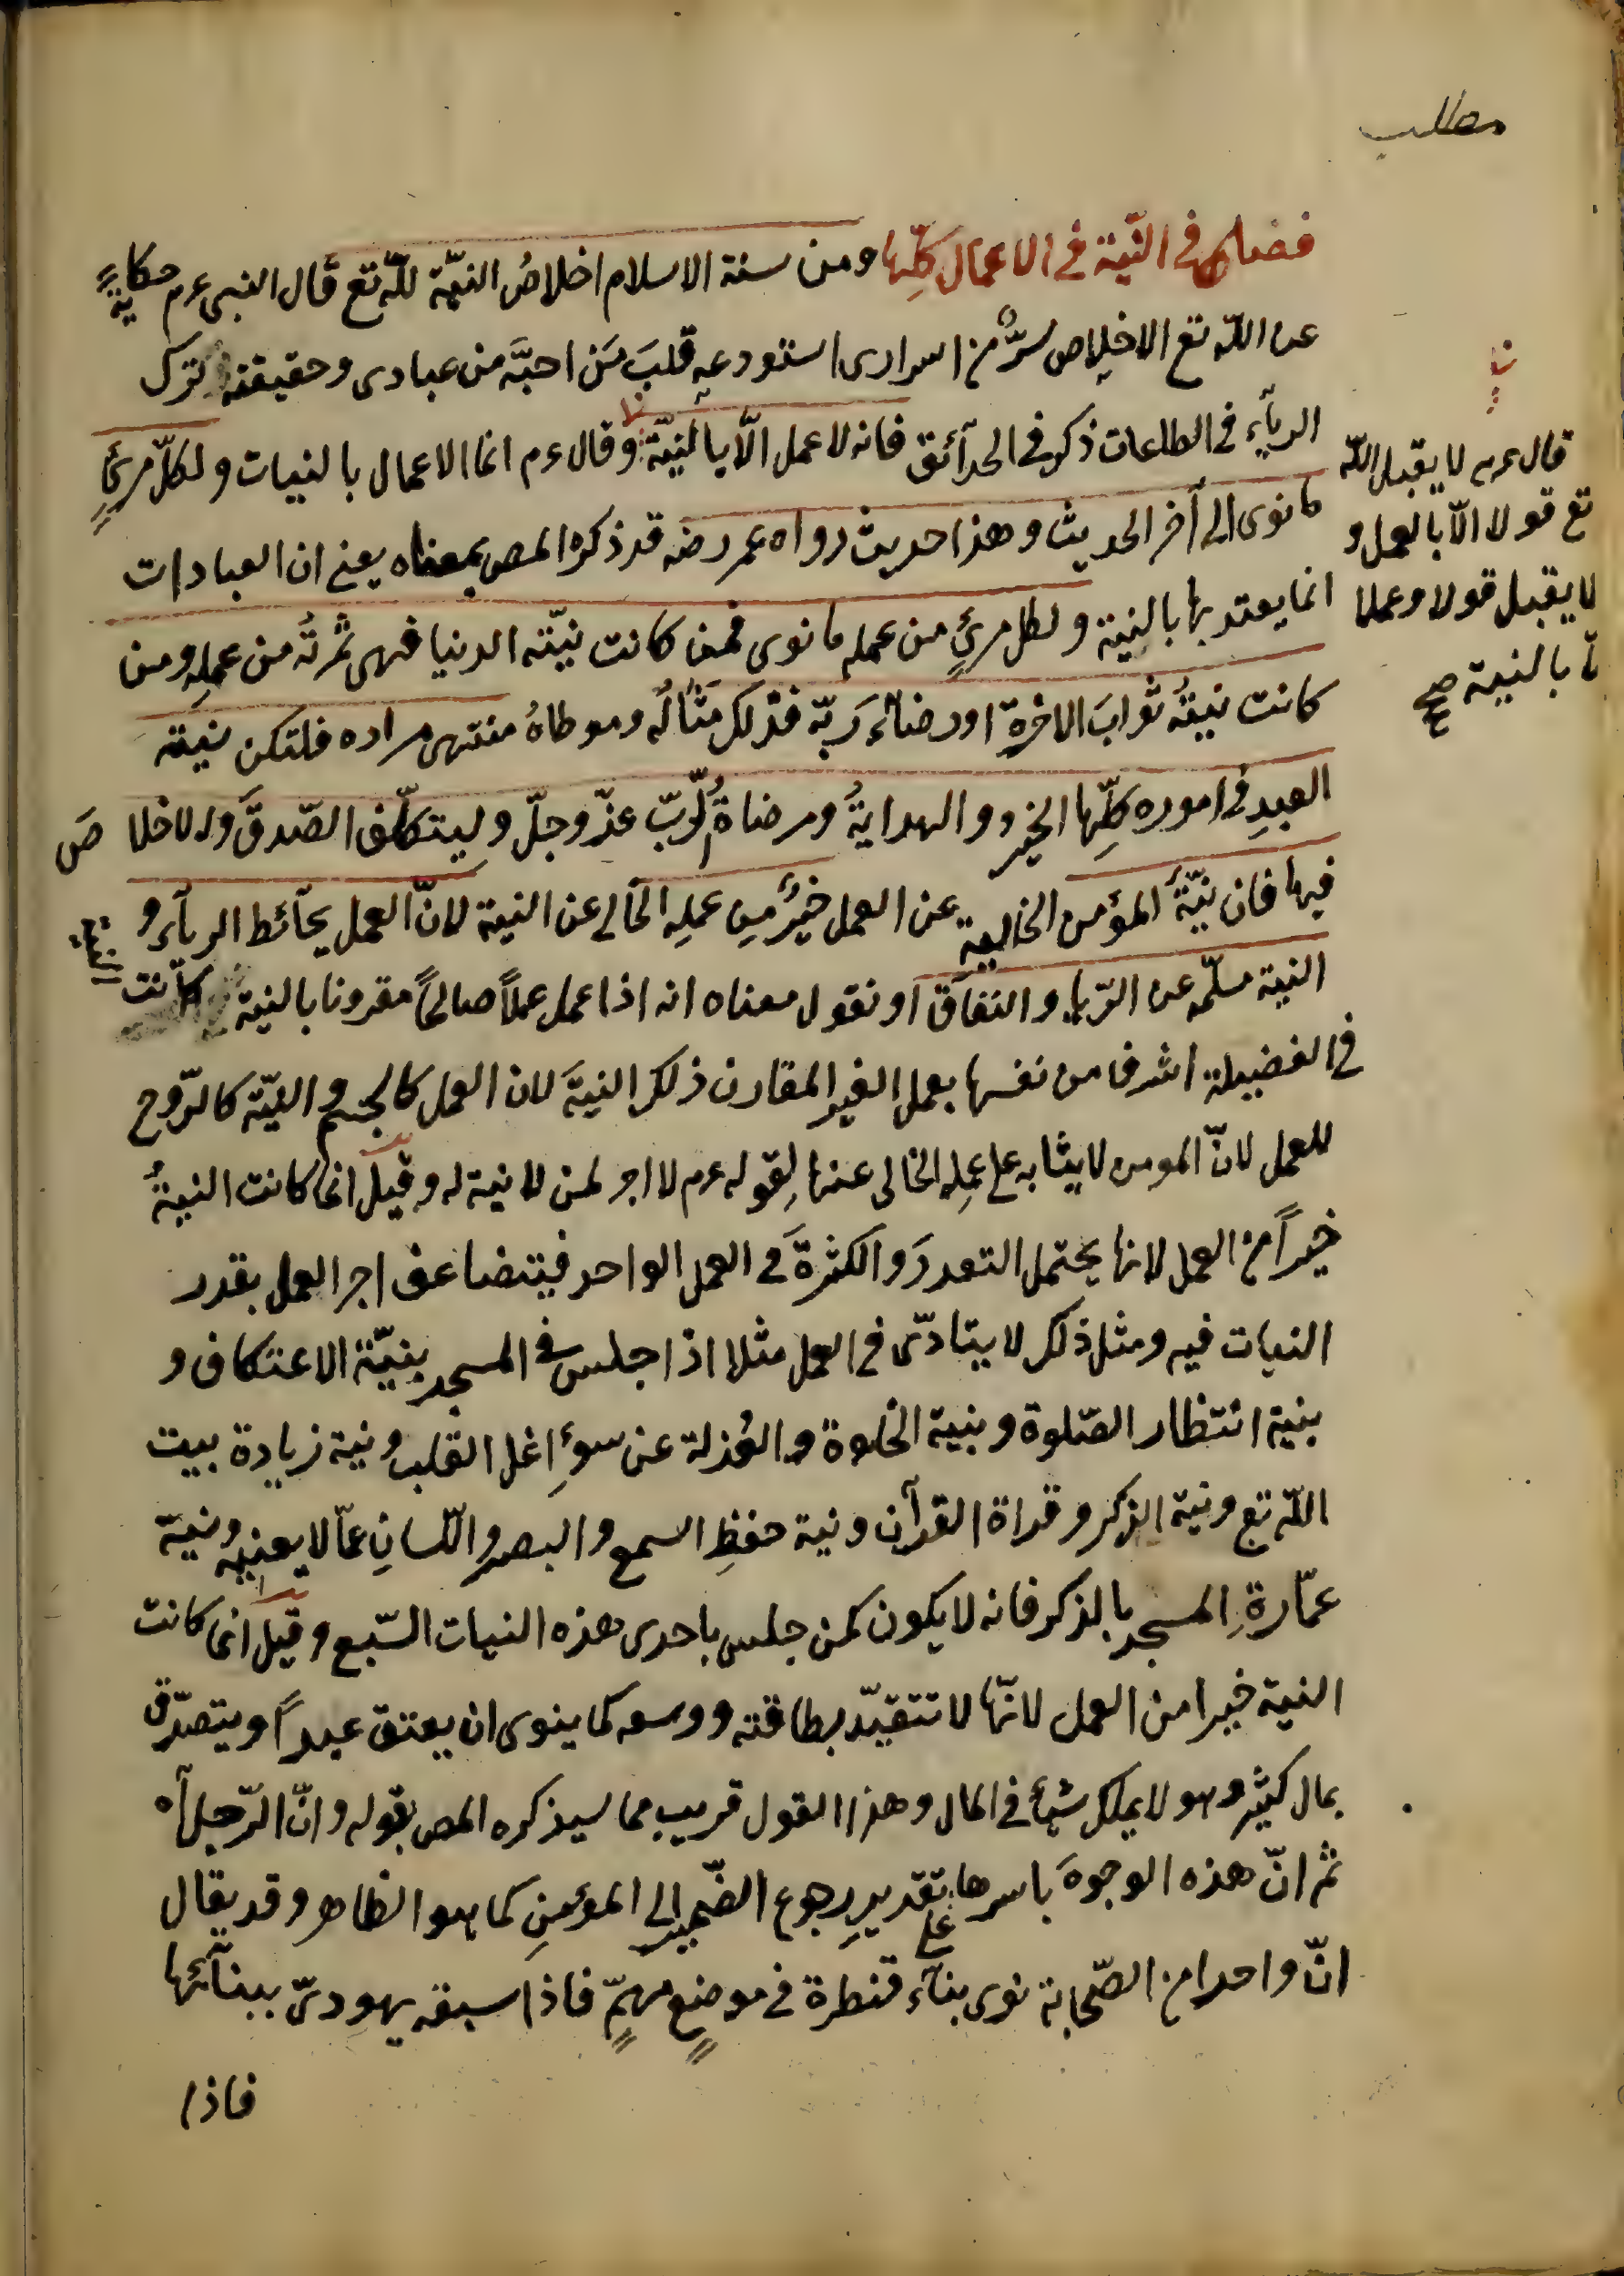 مطلب
فصل في النّية في الاعمال كلِّها ومن سنة الاسلام اخلاصُ النيّة للّه تع قال النبى عم حكايةً
عن اللّه تع الاخلاص سرٌّ من اسرارى استودعته قلبَ مَن احبَّه من عبادى وحقيقته ترك
الريآءِ في الطاعات ذكر في الحدآئق فانه لا عمل الّا بالنيّة وقال عم انما الاعمال بالنيات ولكلّ مرئٍ
ما نوى الى آخر الحديث وهذا حديث رواه عمر رضه قد ذكره المص بمعناه يعنى ان العبادات
انما يعتد بها بالنية ولكل مرئٍ من عمله ما نوى فمن كانت نيّته الدنيا فهى ثمرتُه من عمله ومن
كانت نيتُه ثوابَ الاخرة او رضآءَ رَبّه فذلك مثاله وموطاهُ منتهى مراده فلتكن نيته
العبدِ في اموره كلِّها الخير والهدايةُ ومرضاةُ الرّبّ عزّ وجلّ وليتكلّف الصّدقَ والاخلاصَ
فيها فان نيّةَ المؤمن الخالية عن العمل خيرٌ من عملِه الخالى عن النية لانّ العمل يحآئط الريآء و
النية مسلّمه عن الرّيا والنفاق او نقول معناه انه اذا عمل عملاً صالحاً مقرونا بالنية كانت
في الفضيلة اشرفا من نفسها بعمل الغير المقارن ذلك النيةَ لان العمل كالجسم والنيّة كالرّوح
للعمل لانّ المومن لا يثابه على عمله الخالى عنها لقوله عم لا اجر لمن لا نية له وقيل انما كانت النيةُ
خيراً من العمل لانها يحتمل التعددَ والكثرةَ في العمل الواحد فيتضاعف اجر العمل بقدر
النيات فيه ومثل ذلك لا يتادّى في العمل مثلا اذا جلس في المسجد بنيّة الاعتكاف و
بنية انتظار الصّلوة وبنية الخلوة والعُزلة عن سوءِ اغل القلب ونية زيادة بيت
اللّه تع ونية الذكر وقراة القرآن ونية حفظِ السمع والبصر واللّسانِ عمّا لا يعنيه ونية
عمّارةِ المسجد بالذكر فانه لا يكون كمن جلس باحدى هذه النيات السّبع وقيل انما كانت
النية خيرا من العمل لانّها لا تتقيّد بطاقته ووسعه كما ينوى ان يعتق عبداً ويتصدّق
بمال كثير وهو لا يملك شيأ في المال وهذا القول قريب مما سيذكره المص بقوله وانّ الرّجل آه
ثم انّ هذه الوجوهَ باسرها على تقديرِ رجوع الضّمير الى المؤمنِ كما هو الظاهر وقد يقال
انّ واحدا من الصّحابة نوى بنآء قنطرة في موضعٍ مهمٍّ فاذا سبقه يهودىّ ببنآئها
فاذا
قال عم لا يقبل اللّه
تع قولا الّا بالعمل و
لا يقبل قولا وعملا
الّا بالنية صح